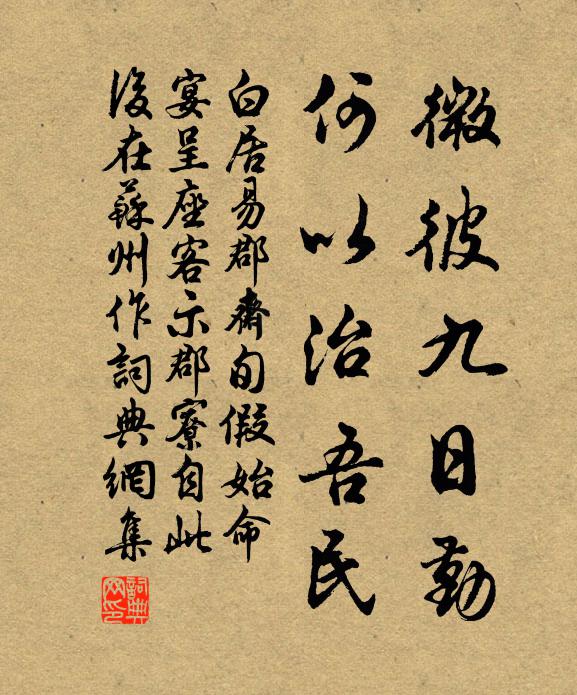 微彼九日勤
何以治吾民
白居易郡齋旬假始命
宴呈座客示郡寮自此
後在蘇州作詞典網集
詞典网印